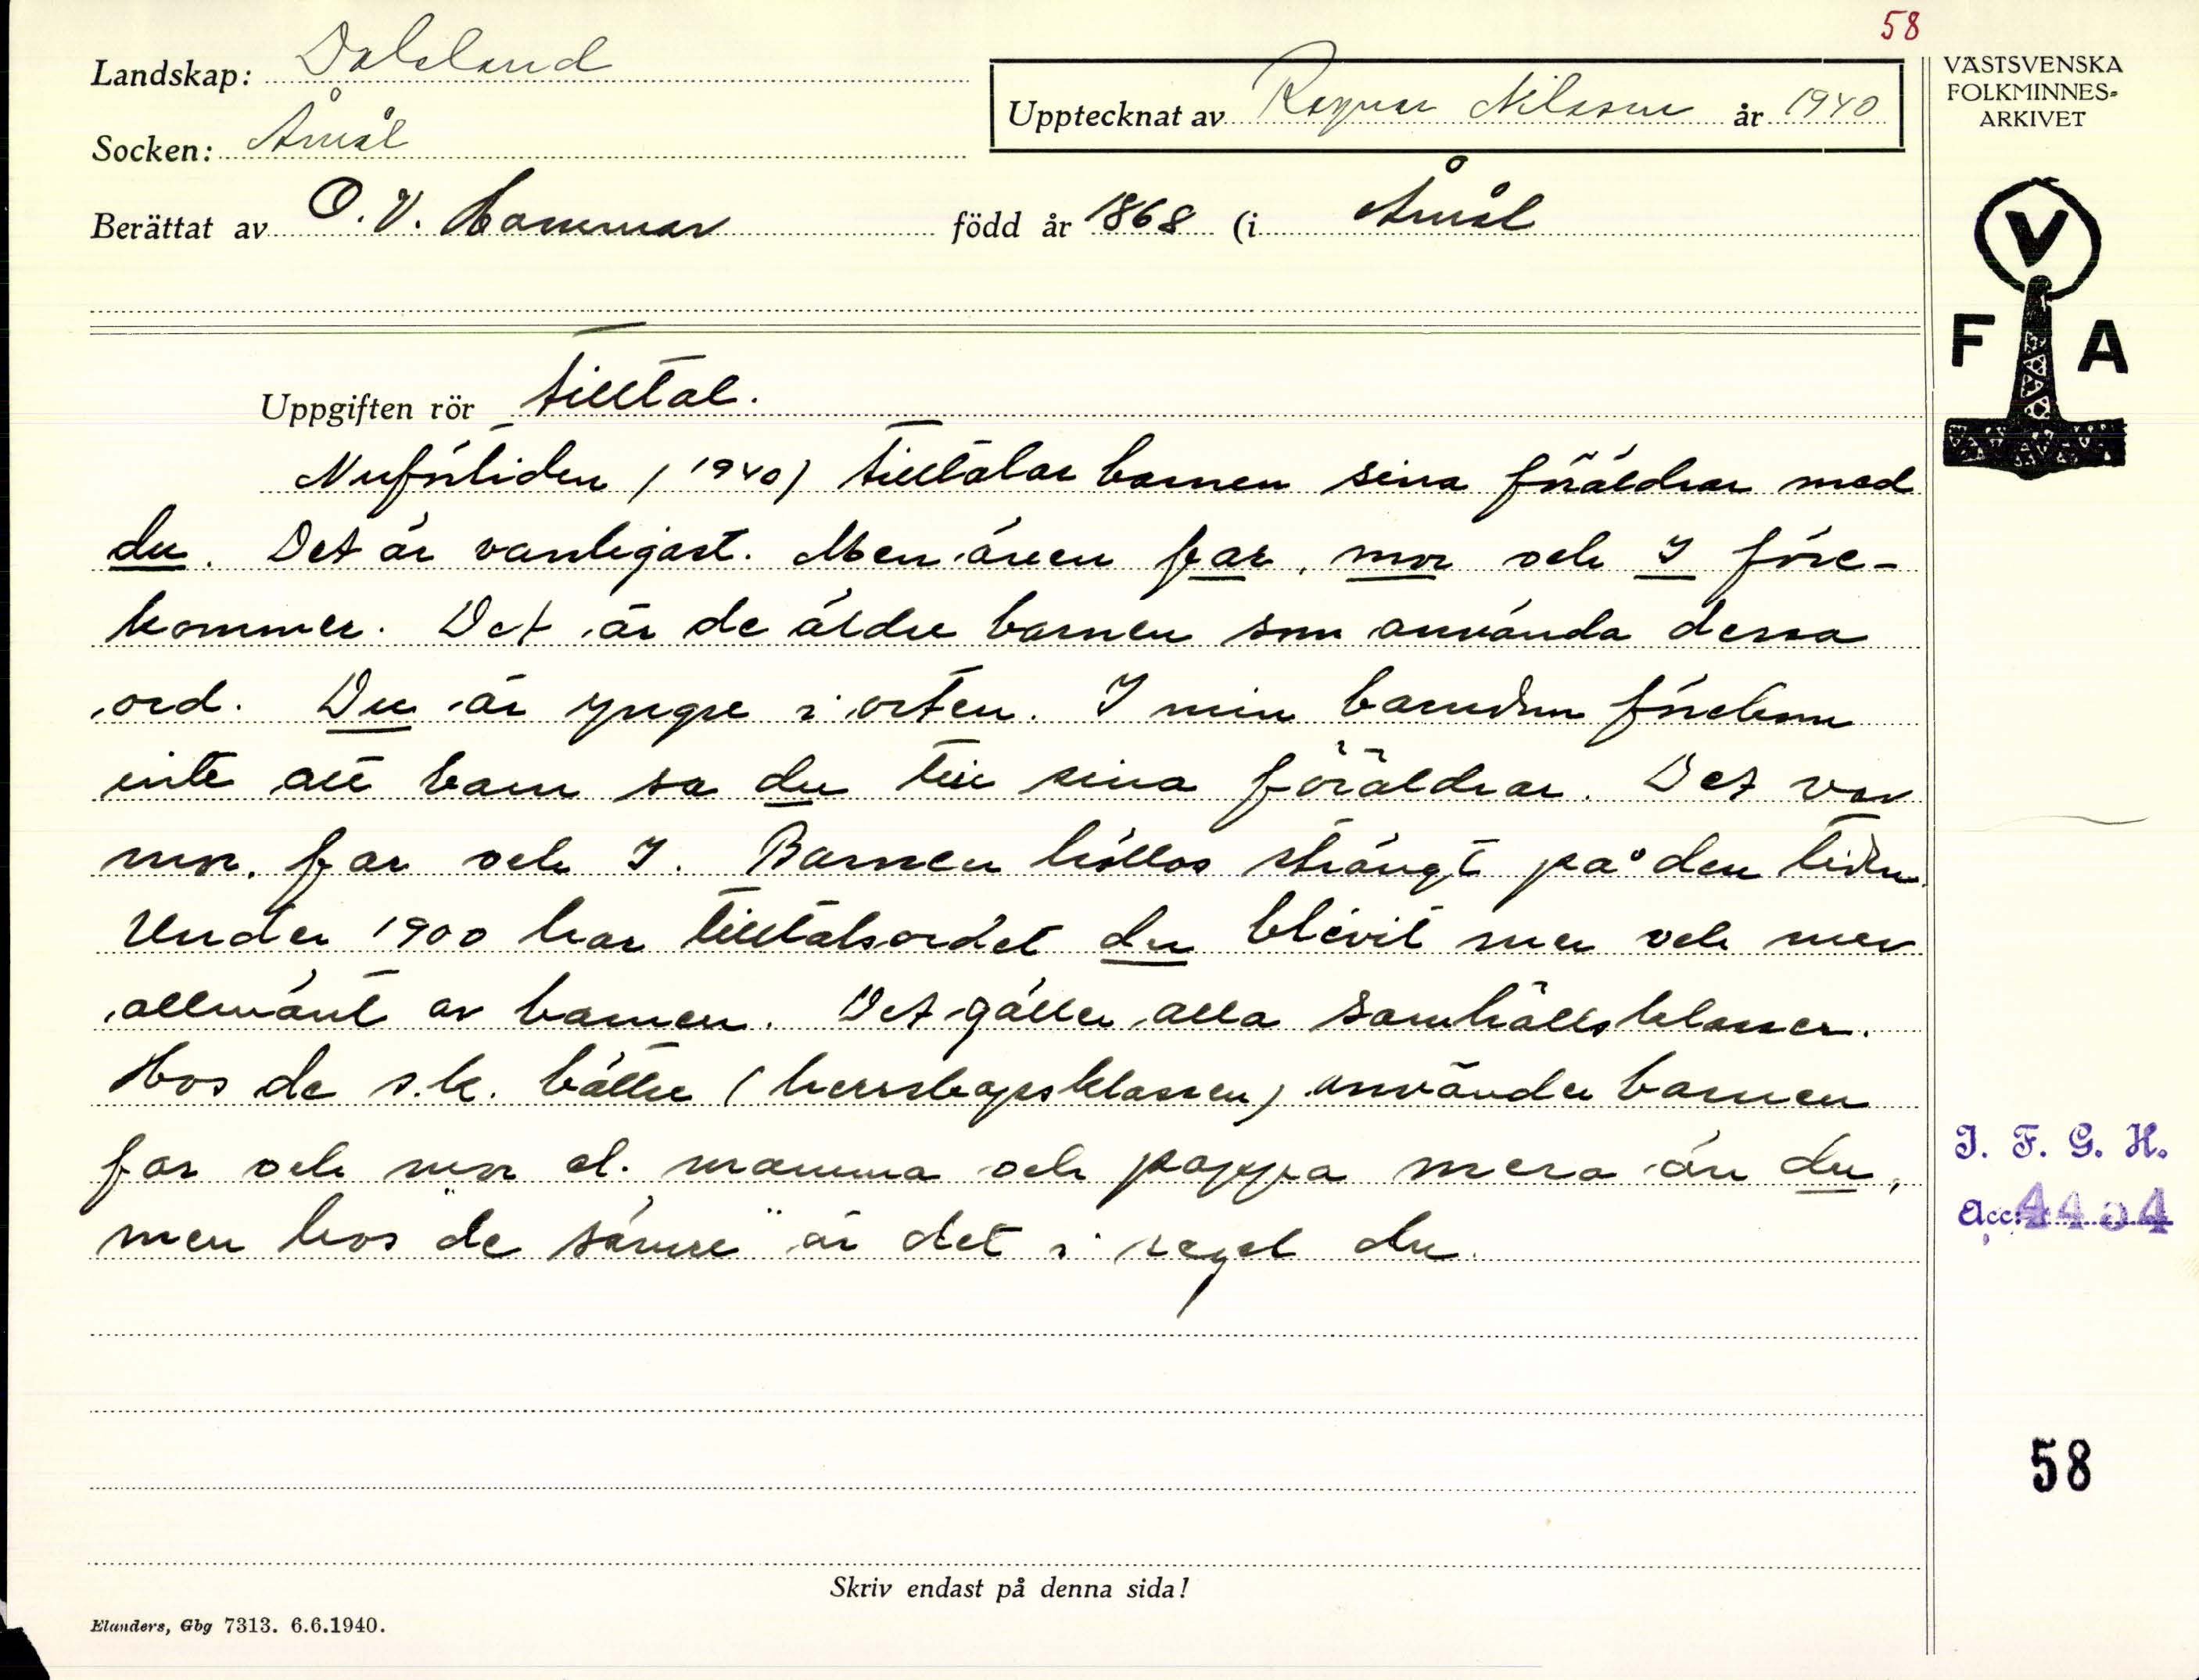 58
Landskap: Dalsland
Socken: Åmål
Upptecknat av Ragnar Nilsson år 1940
Berättat av O. V. Hammar född år 1868 (i Åmål
VÄSTSVENSKA
FOLKMINNES-
ARKIVET
V
F A
Uppgiften rör tilltal.
Nuförtiden (1940) tilltalar barnen sina föräldrar med
du. Det är vanligast. Men även far, mor och I före-
kommer. Det är de äldre barnen som använda dessa
ord. Du är yngre i orten. I min barndom förekom
inte att barn sa du till sina föräldrar. Det var
mor, far och I. Barnen höllos strängt på den tiden.
Under 1900 har tilltalsordet du blivit mer och mer
allmänt av barnen. Det gäller alla samhällsklasser.
Hos de s.k. bättre (herrskapsklassen) använder barnen
far och mor el. mamma och pappa mera än du,
men hos "de sämre" är det i regel du.
I. F. G. H.
Acc: 4404
58
Skriv endast på denna sida!
Elanders, Gbg 7313. 6.6.1940.